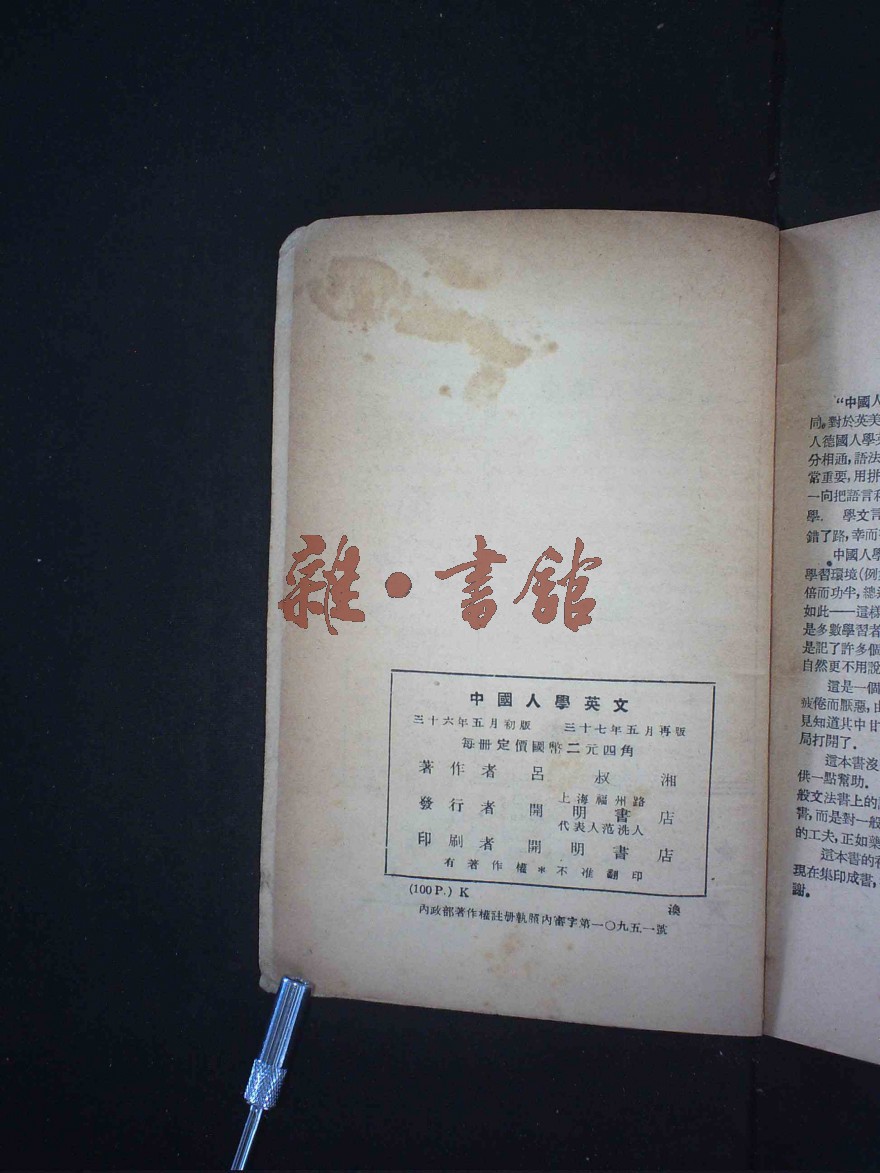 雜·書館
中國人學英文
三十六年五月初版 三十七年五月再版
每冊定價國幣二元四角
著作者 呂叔湘
上海福州路
發行者 開明書店
代表人范洗人
印刷者 開明書店
有著作權*不准翻印
(100P.) K
渙
內政部著作權註册執照內審字第一〇九五一號
“中國人
同。對於英美
人德國人學英
分相通,語法
常重要,用拼
一向把語言和
學. 學文言
錯了路,幸而
中國人學
學習環境(例
倍而功半,總
如此——這樣
是多數學習者
是記了許多個
自然更不用說
這是一個
疲倦而厭惡,由
見知道其中甘
局打開了.
這本書沒
供一點幫助.
般文法書上的
書,而是對一般
的工夫,正如藥
這本書的
現在集印成書,
謝。